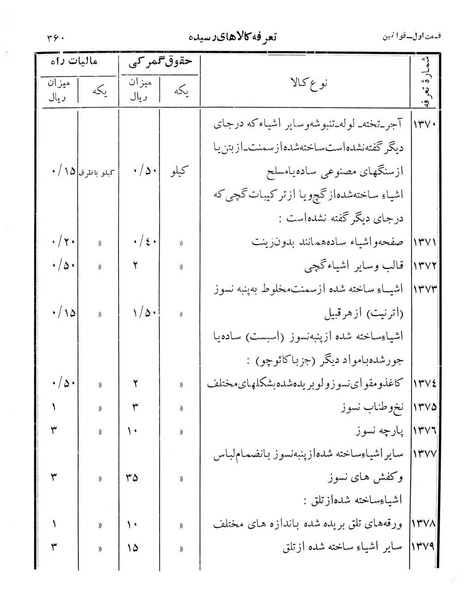 قسمت اول ـ قوانین تعرفه کالاهای رسیده ۳۶۰
شمارهٔ تعرفه نوع کالا حقوق گمرکی مالیات راه
یکه میزان ریال یکه میزان ریال
۱۳۷۰ آجر ـ تخته ـ لوله ـ تنبوشه و سایر اشیاء که در جای
دیگر گفته نشده است ساخته شده از سمنت ـ از بتن یا
از سنگهای مصنوعی ساده یا مسلح کیلو ۰/۵۰ کیلو باظرف ۰/۱۵
اشیاءِ ساخته شده از گچ و یا از ترکیبات گچی که
در جای دیگر گفته نشده است :
۱۳۷۱ صفحه و اشیاء ساده همانند بدون زینت » ۰/٤۰ » ۰/۲۰
۱۳۷۲ قالب و سایر اشیاء گچی » ۲ » ۰/۵۰
۱۳۷۳ اشیاءِ ساخته شده از سمنت مخلوط به پنبه نسوز
(اترنیت) از هر قبیل » ۱/۵۰ » ۰/۱۵
اشیاءِ ساخته شده از پنبه نسوز (اسبست) ساده یا
جور شده با مواد دیگر (جز با کائوچو) :
۱۳۷٤ کاغذ و مقوای نسوز ولو بریده شده بشکلهای مختلف » ۲ » ۰/۵۰
۱۳۷۵ نخ و طناب نسوز » ۳ » ۱
۱۳۷٦ پارچه نسوز » ۱۰ » ۳
۱۳۷۷ سایر اشیاءِ ساخته شده از پنبه نسوز بانضمام لباس
و کفش های نسوز » ۳۵ » ۳
اشیاءِ ساخته شده از تلق :
۱۳۷۸ ورقه‌های تلق بریده شده باندازه های مختلف » ۱۰ » ۱
۱۳۷۹ سایر اشیاءِ ساخته شده از تلق » ۱۵ » ۳